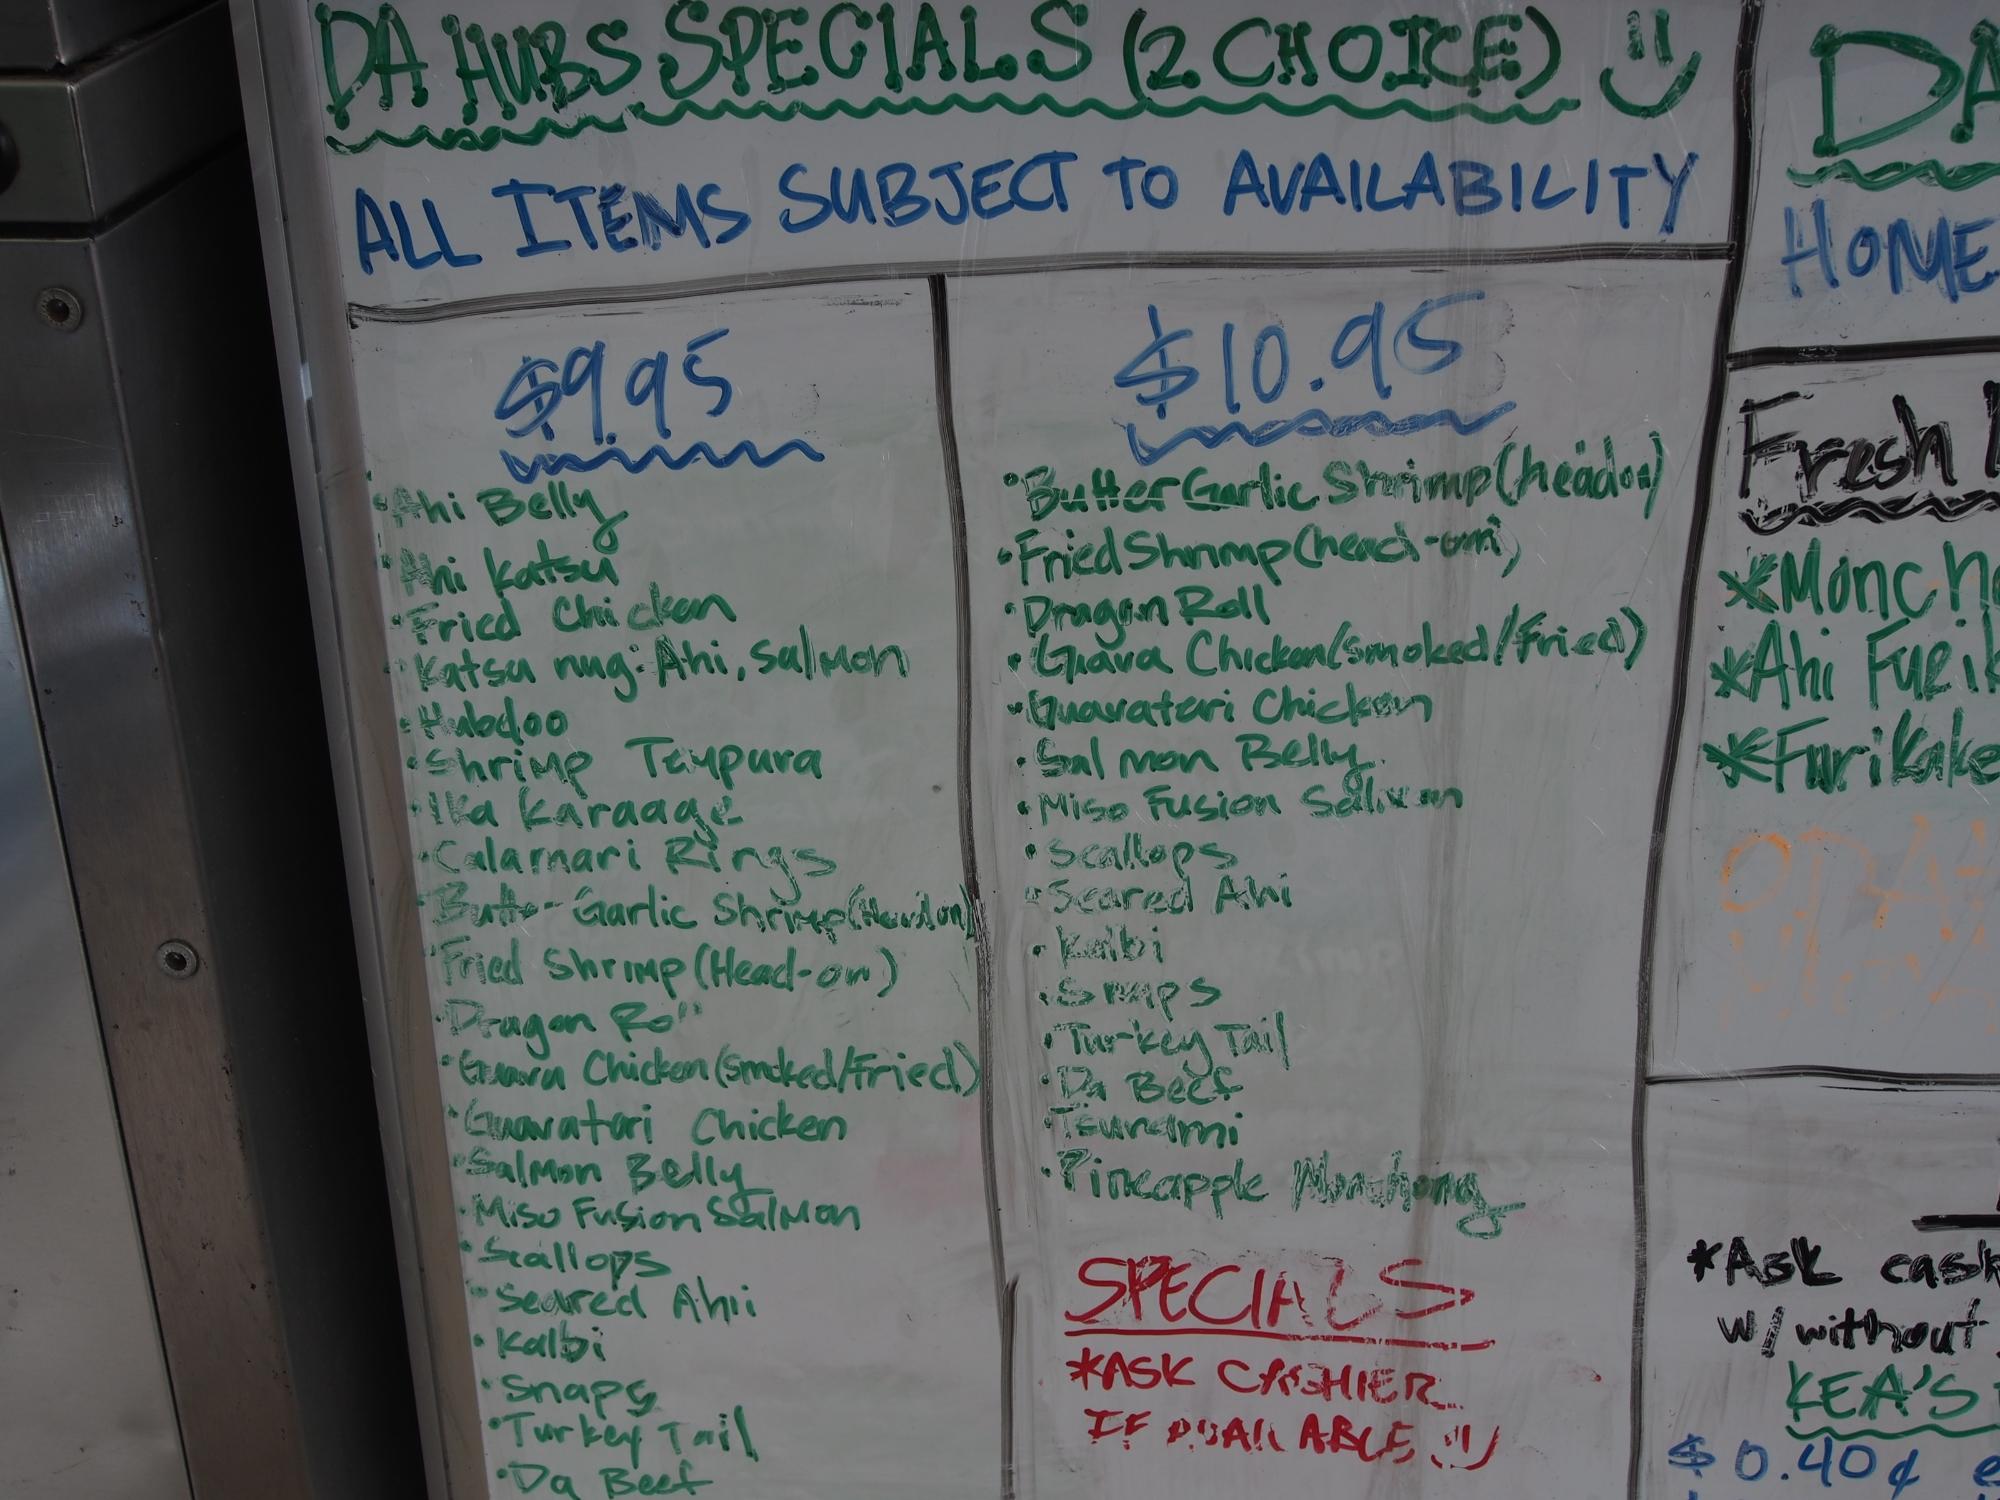 DA HUBS SPECIALS (2 CHOICE)
ALL ITEMS SUBJECT TO AVAILABILITY
$9.95
• Ahi Belly
• Ahi Katsu
• Fried Chicken
• Katsu nug: Ahi, Salmon
• Hubdoo
• Shrimp Tempura
• Ika Karaage
• Calamari Rings
• Butter Garlic Shrimp (Head on)
• Fried Shrimp (Head-on)
• Dragon Roll
• Guava Chicken (Smoked/Fried)
• Guavatari Chicken
• Salmon Belly
• Miso Fusion Salmon
• Scallops
• Seared Ahi
• Kalbi
• Snaps
• Turkey Tail
• Da Beef
$10.95
• Butter Garlic Shrimp (head on)
• Fried Shrimp (head-on)
• Dragon Roll
• Guava Chicken (Smoked/Fried)
• Guavatari Chicken
• Salmon Belly
• Miso Fusion Salmon
• Scallops
• Seared Ahi
• Kalbi
• Snaps
• Turkey Tail
• Da Beef
• Tsunami
• Pineapple Monchong
SPECIALS
*ASK CASHIER
IF AVAILABLE
DA
HOME
Fresh
*Monch
*Ahi Furik
*Furikake
*Ask cash
w/without
KEA'S
$0.40¢